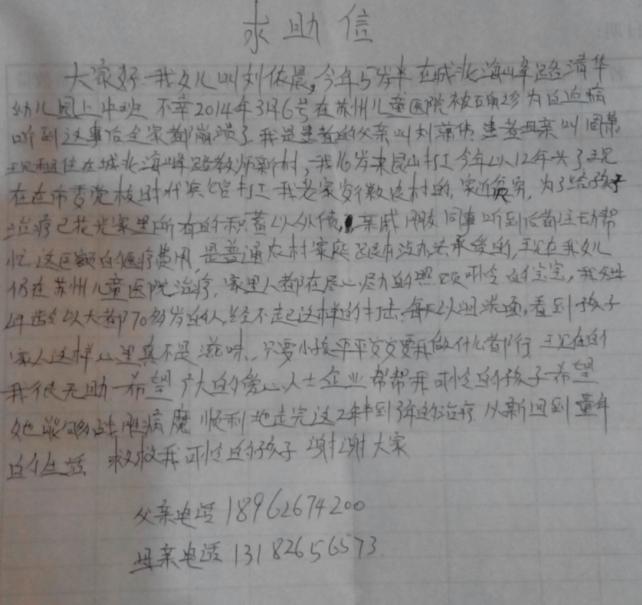 求助信
大家好 我女儿叫刘依晨,今年5岁半 在城北海峰路清华
幼儿园上中班 不幸2014年3月6号在苏州儿童医院被确诊为白血病
听到这事后全家都崩溃了 我是患者的父亲叫刘 患者母亲叫周
现租住在城北海峰路教师新村,我16岁来昆山打工今年以12年头了现
在在市委党校时代宾馆打工 我老家安徽农村的,家近贫穷,为了给孩子
治疗已花光家里所有的积蓄以外债,亲戚 朋友 同事听到后都过来帮
忙 这巨额的医疗费用,是普通农村家庭 没办法承受的,现在我女儿
仍在苏州儿童医院治疗.家里人都在尽心尽力的照顾可怜的宝宝,我父母
年龄以大都70多岁的人.经不起这样的打击.每天以泪洗面,看到孩子
家人这样心里真不是滋味,只要小孩平平安安要我做什么都行 现在的
我很无助 希望广大的爱心人士企业帮帮我可怜的孩子 希望
她能够战胜病魔 顺利地走完这2年半到3年的治疗 从新回到童年
的生活 救救我可怜的孩子 谢谢大家
父亲电话 18962674200
母亲电话 13182656573